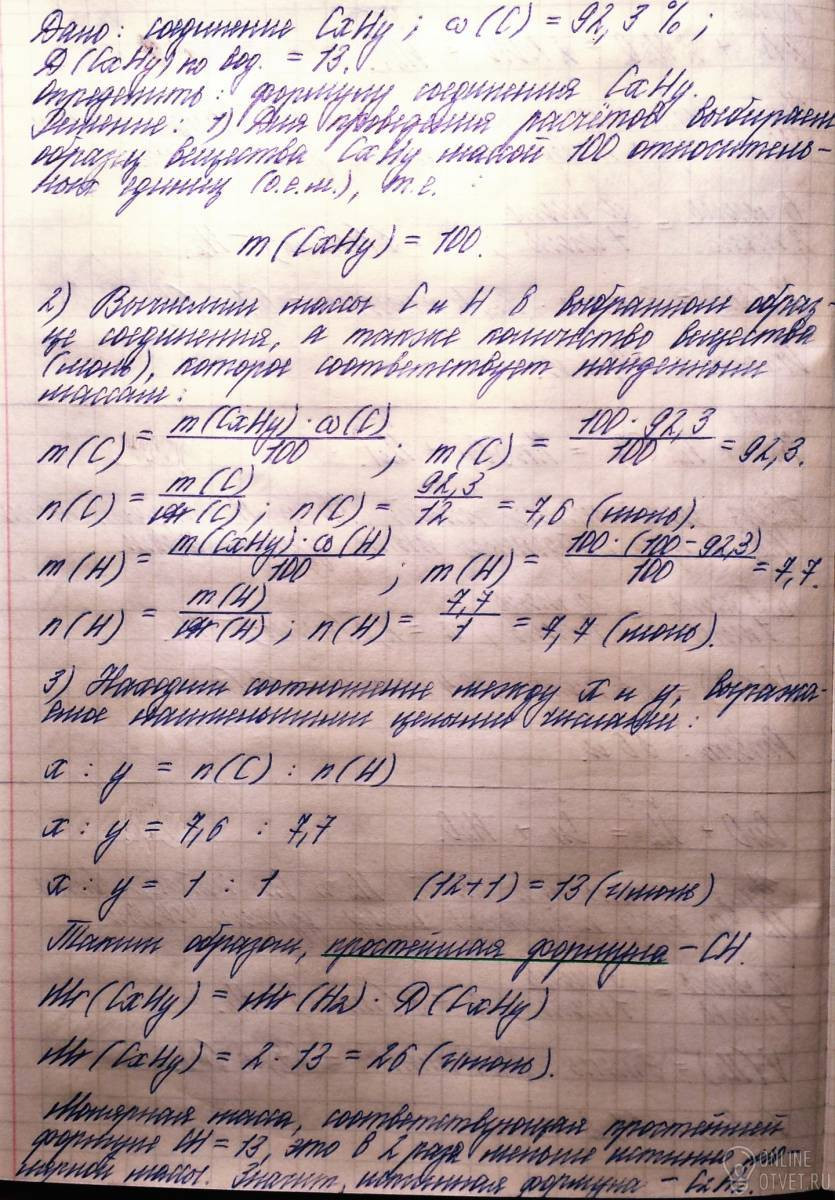 Дано: соединение CxHy; ω(C) = 92,3%;
D(CxHy) по вод. = 13.
Определить: формулу соединения CxHy.
Решение: 1) Для проведения расчётов выбираем
образец вещества CxHy массой 100 относитель-
ных единиц (о.е.м.), т.е. :
m(CxHy) = 100.
2) Вычислим массы C и H в выбранном образ-
це соединения, а также количество вещества
(моль), которое соответствует найденным
массам:
m(C) = m(CxHy)·ω(C)/100 ; m(C) = 100·92,3/100 = 92,3.
n(C) = m(C)/Mr(C) ; n(C) = 92,3/12 = 7,6 (моль).
m(H) = m(CxHy)·ω(H)/100 ; m(H) = 100·(100-92,3)/100 = 7,7.
n(H) = m(H)/Mr(H) ; n(H) = 7,7/1 = 7,7 (моль).
3) Находим соотношение между x и y, выража-
емое наименьшими целыми числами:
x : y = n(C) : n(H)
x : y = 7,6 : 7,7
x : y = 1 : 1 (12+1) = 13 (г/моль)
Таким образом, простейшая формула – CH.
Mr(CxHy) = Mr(H2) · D(CxHy)
Mr(CxHy) = 2 · 13 = 26 (г/моль).
Молярная масса, соответствующая простейшей
формуле CH = 13, это в 2 раза меньше истинной мо-
лярной массы. Значит, истинная формула –
ONLINE
OTVET.RU